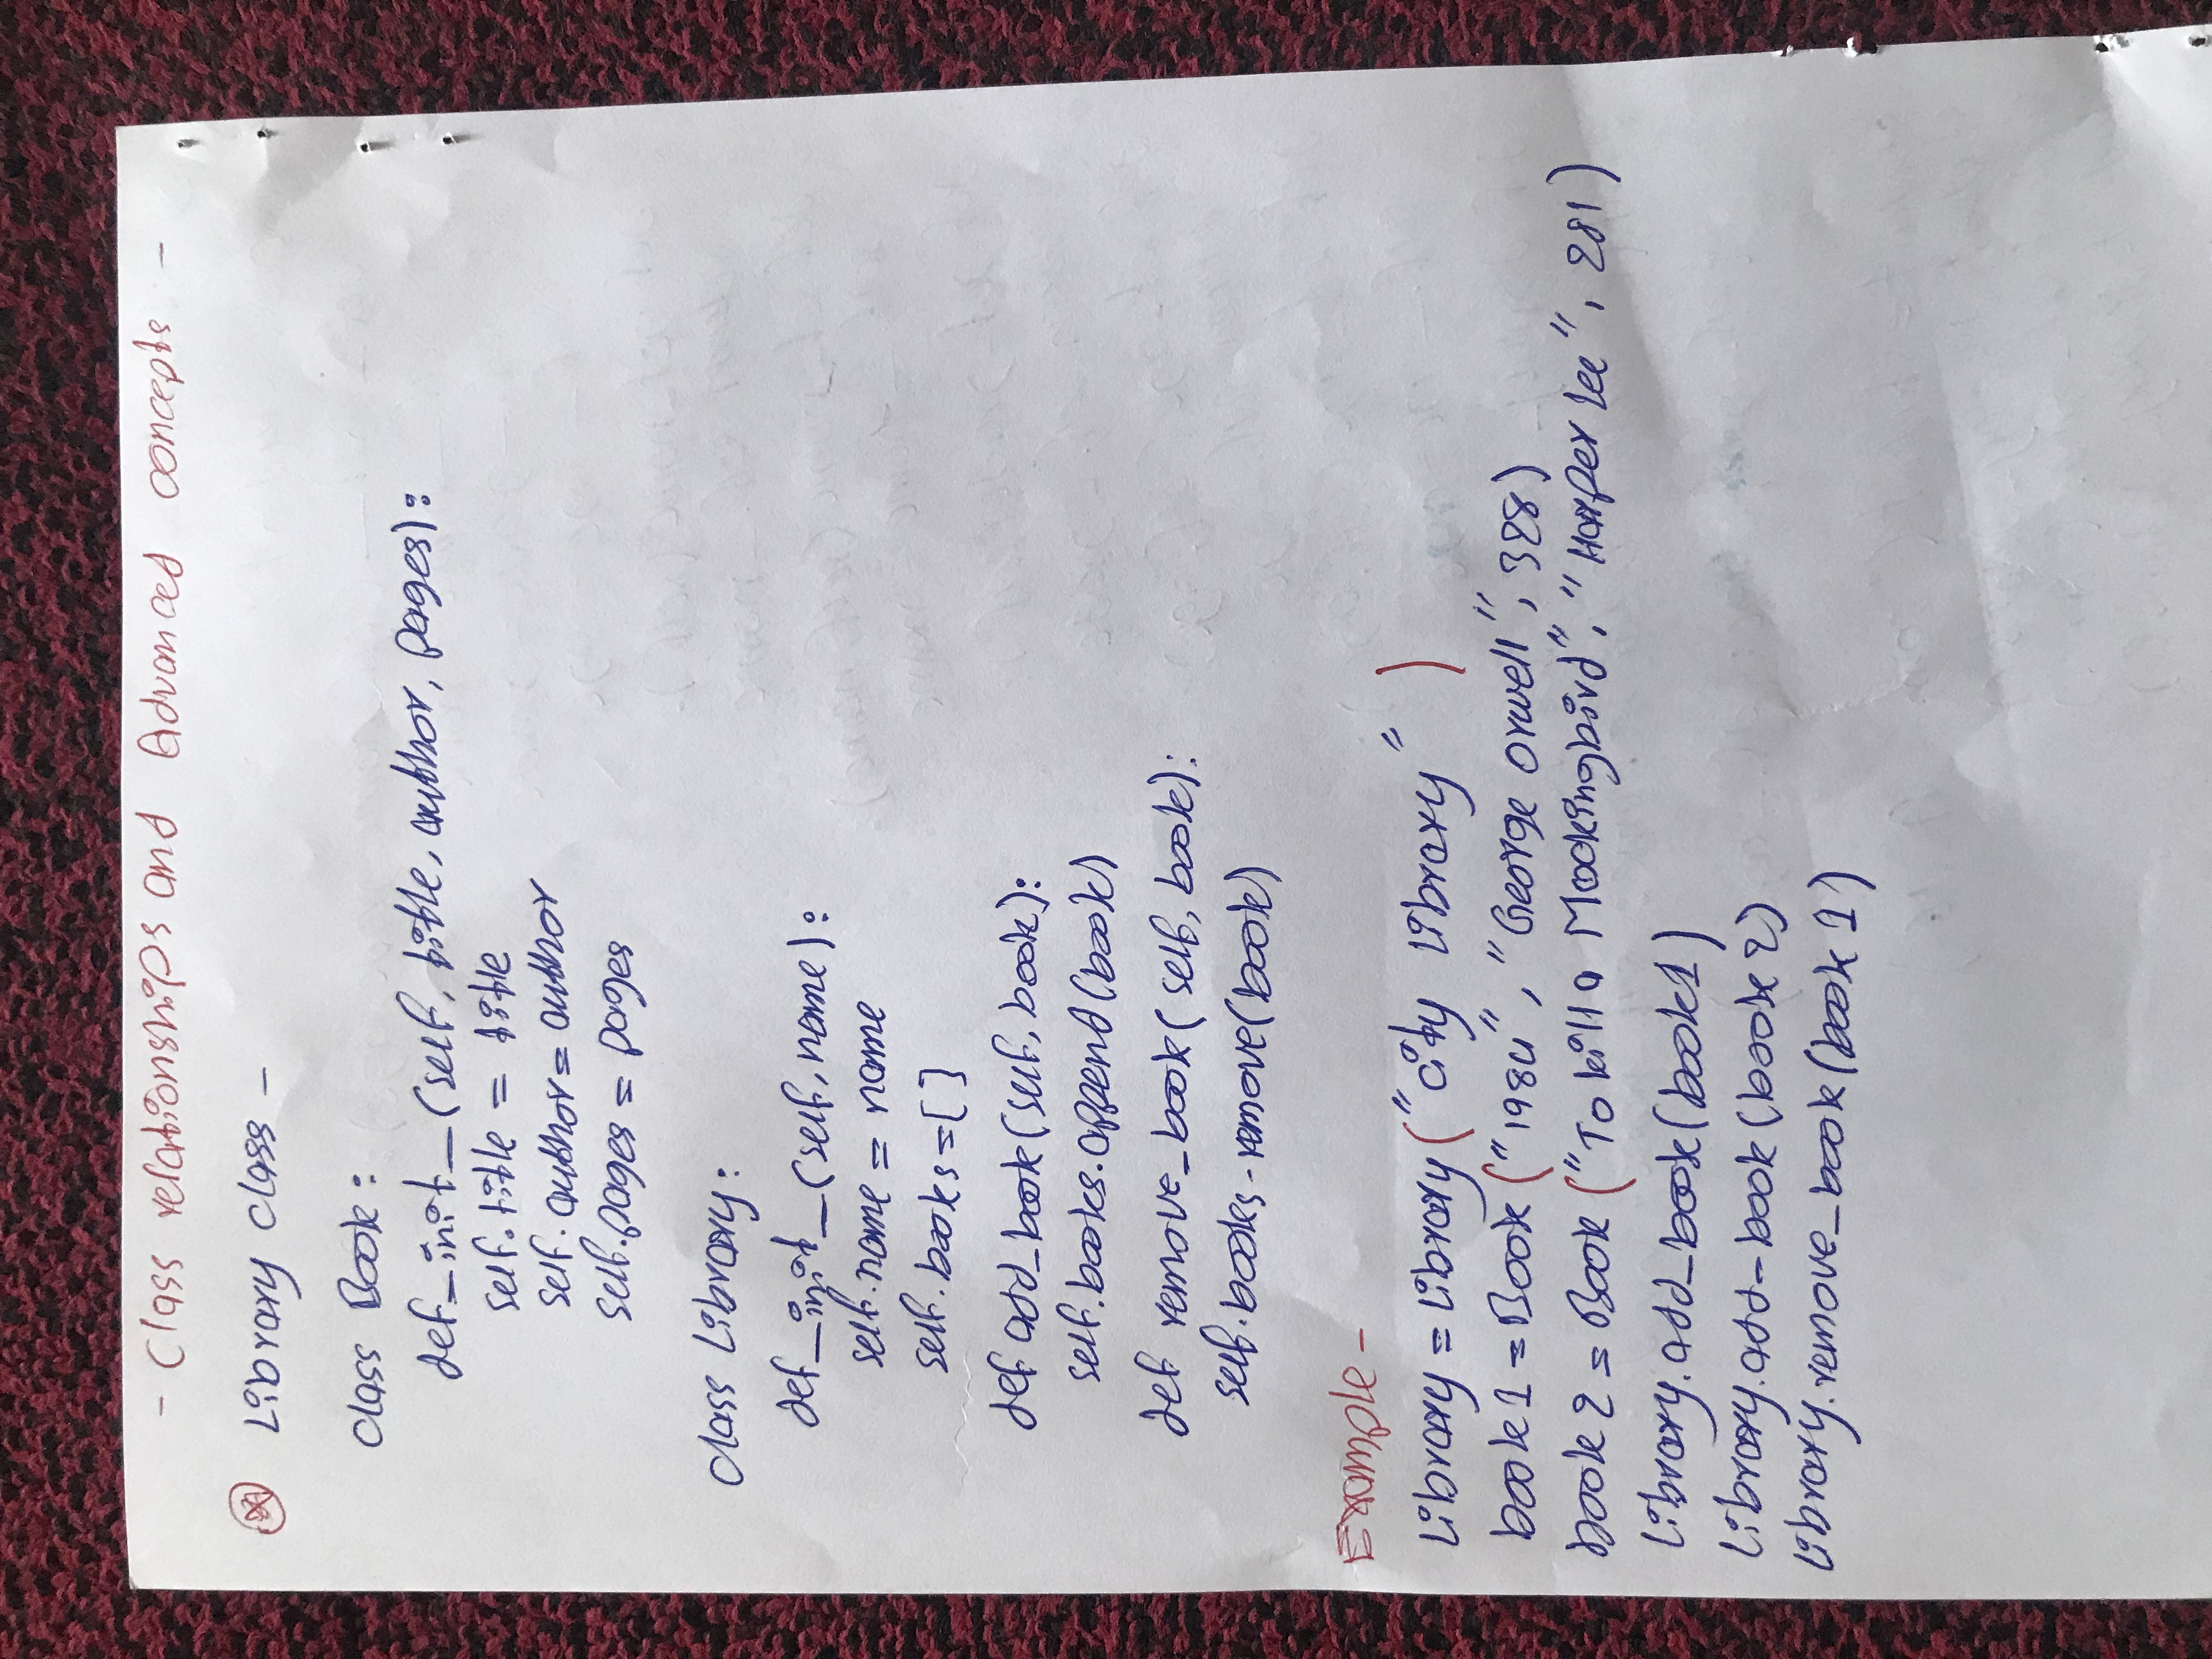 - Class relationships and Advanced concepts -
Library class -
class Book:
def_init_(self, title, author, pages):
self.title = title
self.author = author
self.pages = pages
class Library:
def_init_(self, name):
self.name = name
self.books = []
def add_book(self, book):
self.books.append(book)
def remove_book(self, book):
self.books.remove(book)
Example -
Library = Library("City Library")
book1 = Book("1984", "George orwell", 328)
book2 = Book("To kill a Mockingbird", "Harper Lee", 281)
Library.add_book(book1)
Library.add-book(book2)
Library.remove_book(book1)